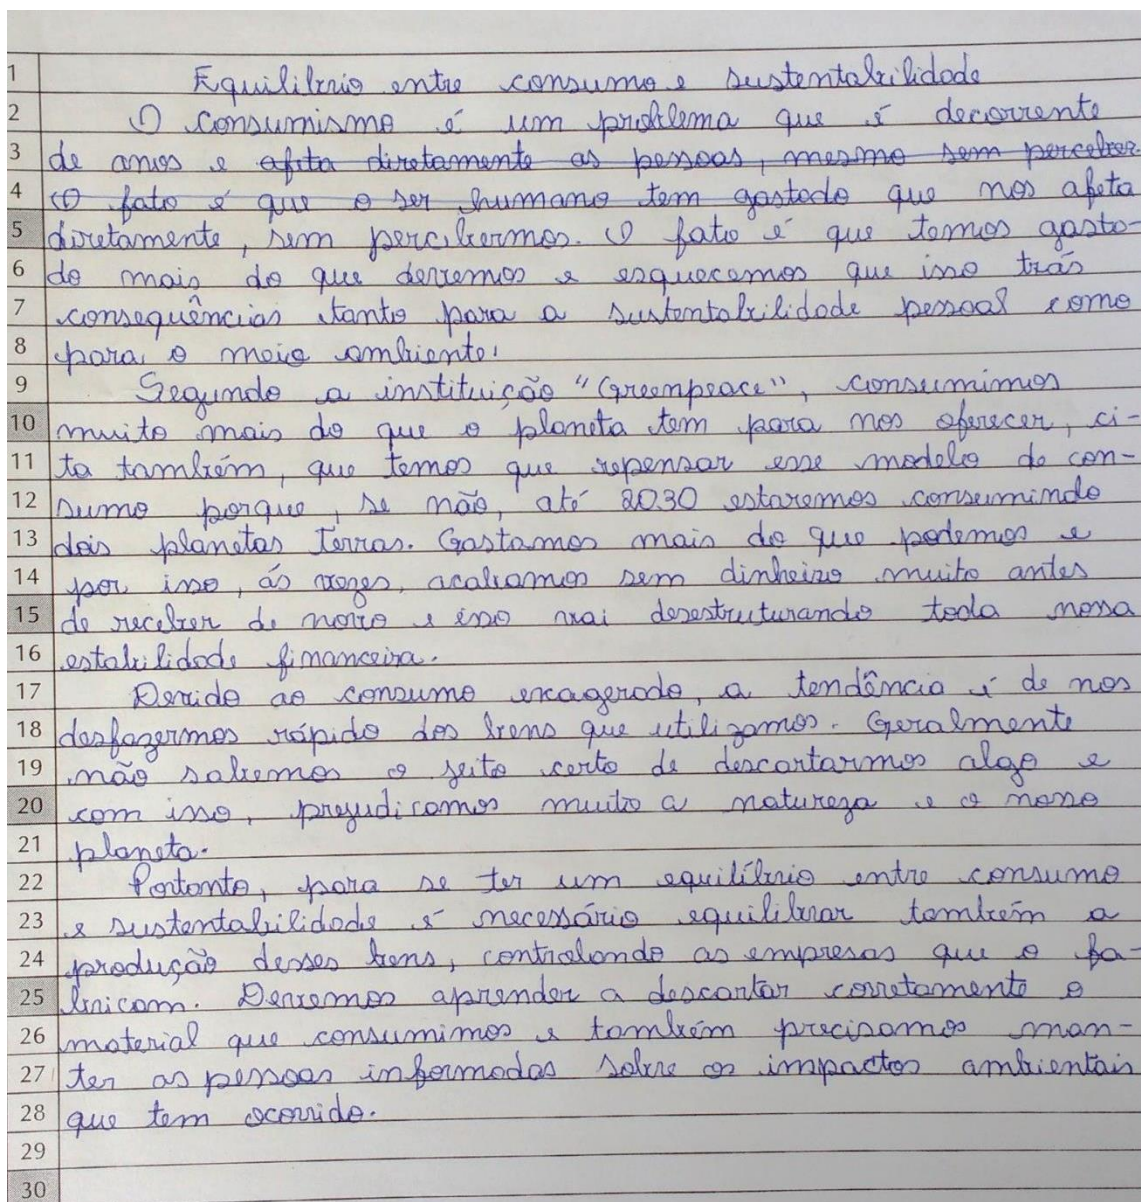 1 Equilibrio entre consumo e sustentabilidade
2 O consumismo é um problema que é decorrente
3 de anos e afeta diretamente as pessoas, mesmo sem perceber.
4 O fato é que o ser humano tem gastado que nos afeta
5 diretamente, sem percibermos. O fato é que temos gasta-
6 do mais do que devemos e esquecemos que isso trás
7 consequências tanto para a sustentabilidade pessoal como
8 para o meio ambiente.
9 Segundo a instituição "Greenpeace", consumimos
10 muito mais do que o planeta tem para nos oferecer, ci-
11 ta também, que temos que repensar esse modelo de con-
12 sumo porque, se não, até 2030 estaremos consumindo
13 dois planetas Terras. Gastamos mais do que podemos e
14 por isso, ás vezes, acabamos sem dinheiro muito antes
15 de receber de novo e isso vai desestruturando toda nossa
16 estabilidade financeira.
17 Devido ao consumo exagerado, a tendência é de nos
18 desfazermos rápido dos bens que utilizamos. Geralmente
19 não sabemos o jeito certo de descartarmos algo e
20 com isso, prejudicamos muito a natureza e o nosso
21 planeta.
22 Portanto, para se ter um equilíbrio entre consumo
23 e sustentabilidade é necessário equilibrar também a
24 produção desses bens, controlando as empresas que o fa-
25 bricam. Devemos aprender a descartar corretamente o
26 material que consumimos e também precisamos man-
27 ter as pessoas informadas sobre os impactos ambientais
28 que tem ocorrido.
29
30